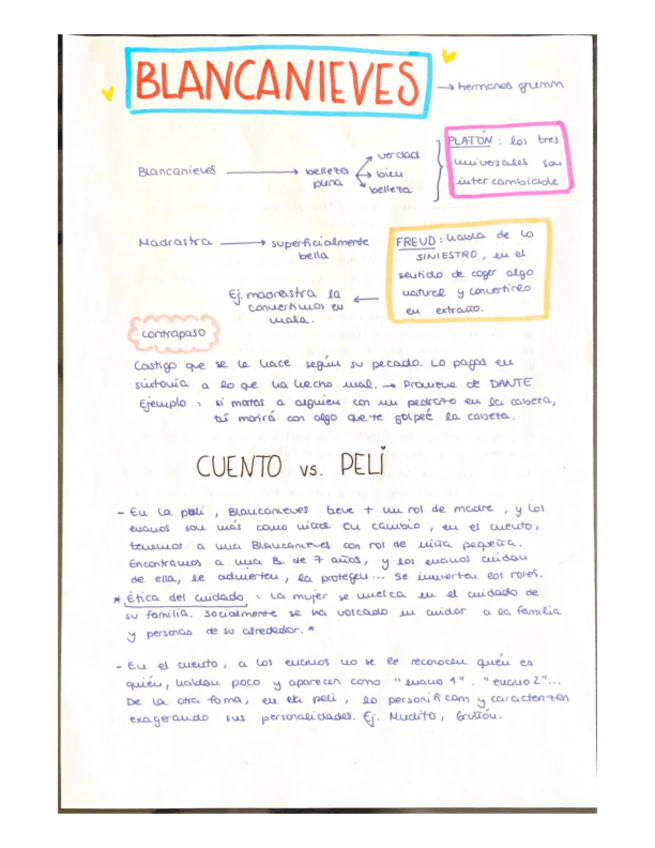 BLANCANIEVES → hermanos grimm
Blancanieves → belleza pura → verdad
→ bien
→ belleza
PLATÓN: los tres
universales son
intercambiable
Madrastra → superficialmente
bella
FREUD: habla de lo
SINIESTRO, en el
sentido de coger algo
natural y convertirlo
en extraño.
Ej. madrastra la
convertimos en
mala.
contrapaso
Castigo que se le hace según su pecado. Lo pagas en
sintonía a lo que ha hecho mal. → Proviene de DANTE
Ejemplo: si matas a alguien con un pedrolo en la cabeza,
tú morirá con algo que te golpeé la cabeza.
CUENTO vs. PELI
- En la peli, Blancanieves tiene + un rol de madre, y los
enanos son más como niños. En cambio, en el cuento,
tenemos a una Blancanieves con rol de niña pequeña.
Encontramos a una B. de 7 años, y los enanos cuidan
de ella, le advierten, la protegen... Se invierten los roles.
* Ética del cuidado: la mujer se vuelca en el cuidado de
su familia. Socialmente se ha volcado en cuidar a la familia
y personas de su alrededor. *
- En el cuento, a los enanos no se le reconocen quién es
quién, hablan poco y aparecen como "enano 1", "enano 2"...
De la otra forma, en la peli, lo personifican y caracterizan
exagerando sus personalidades. Ej. Mudito, Gruñón.